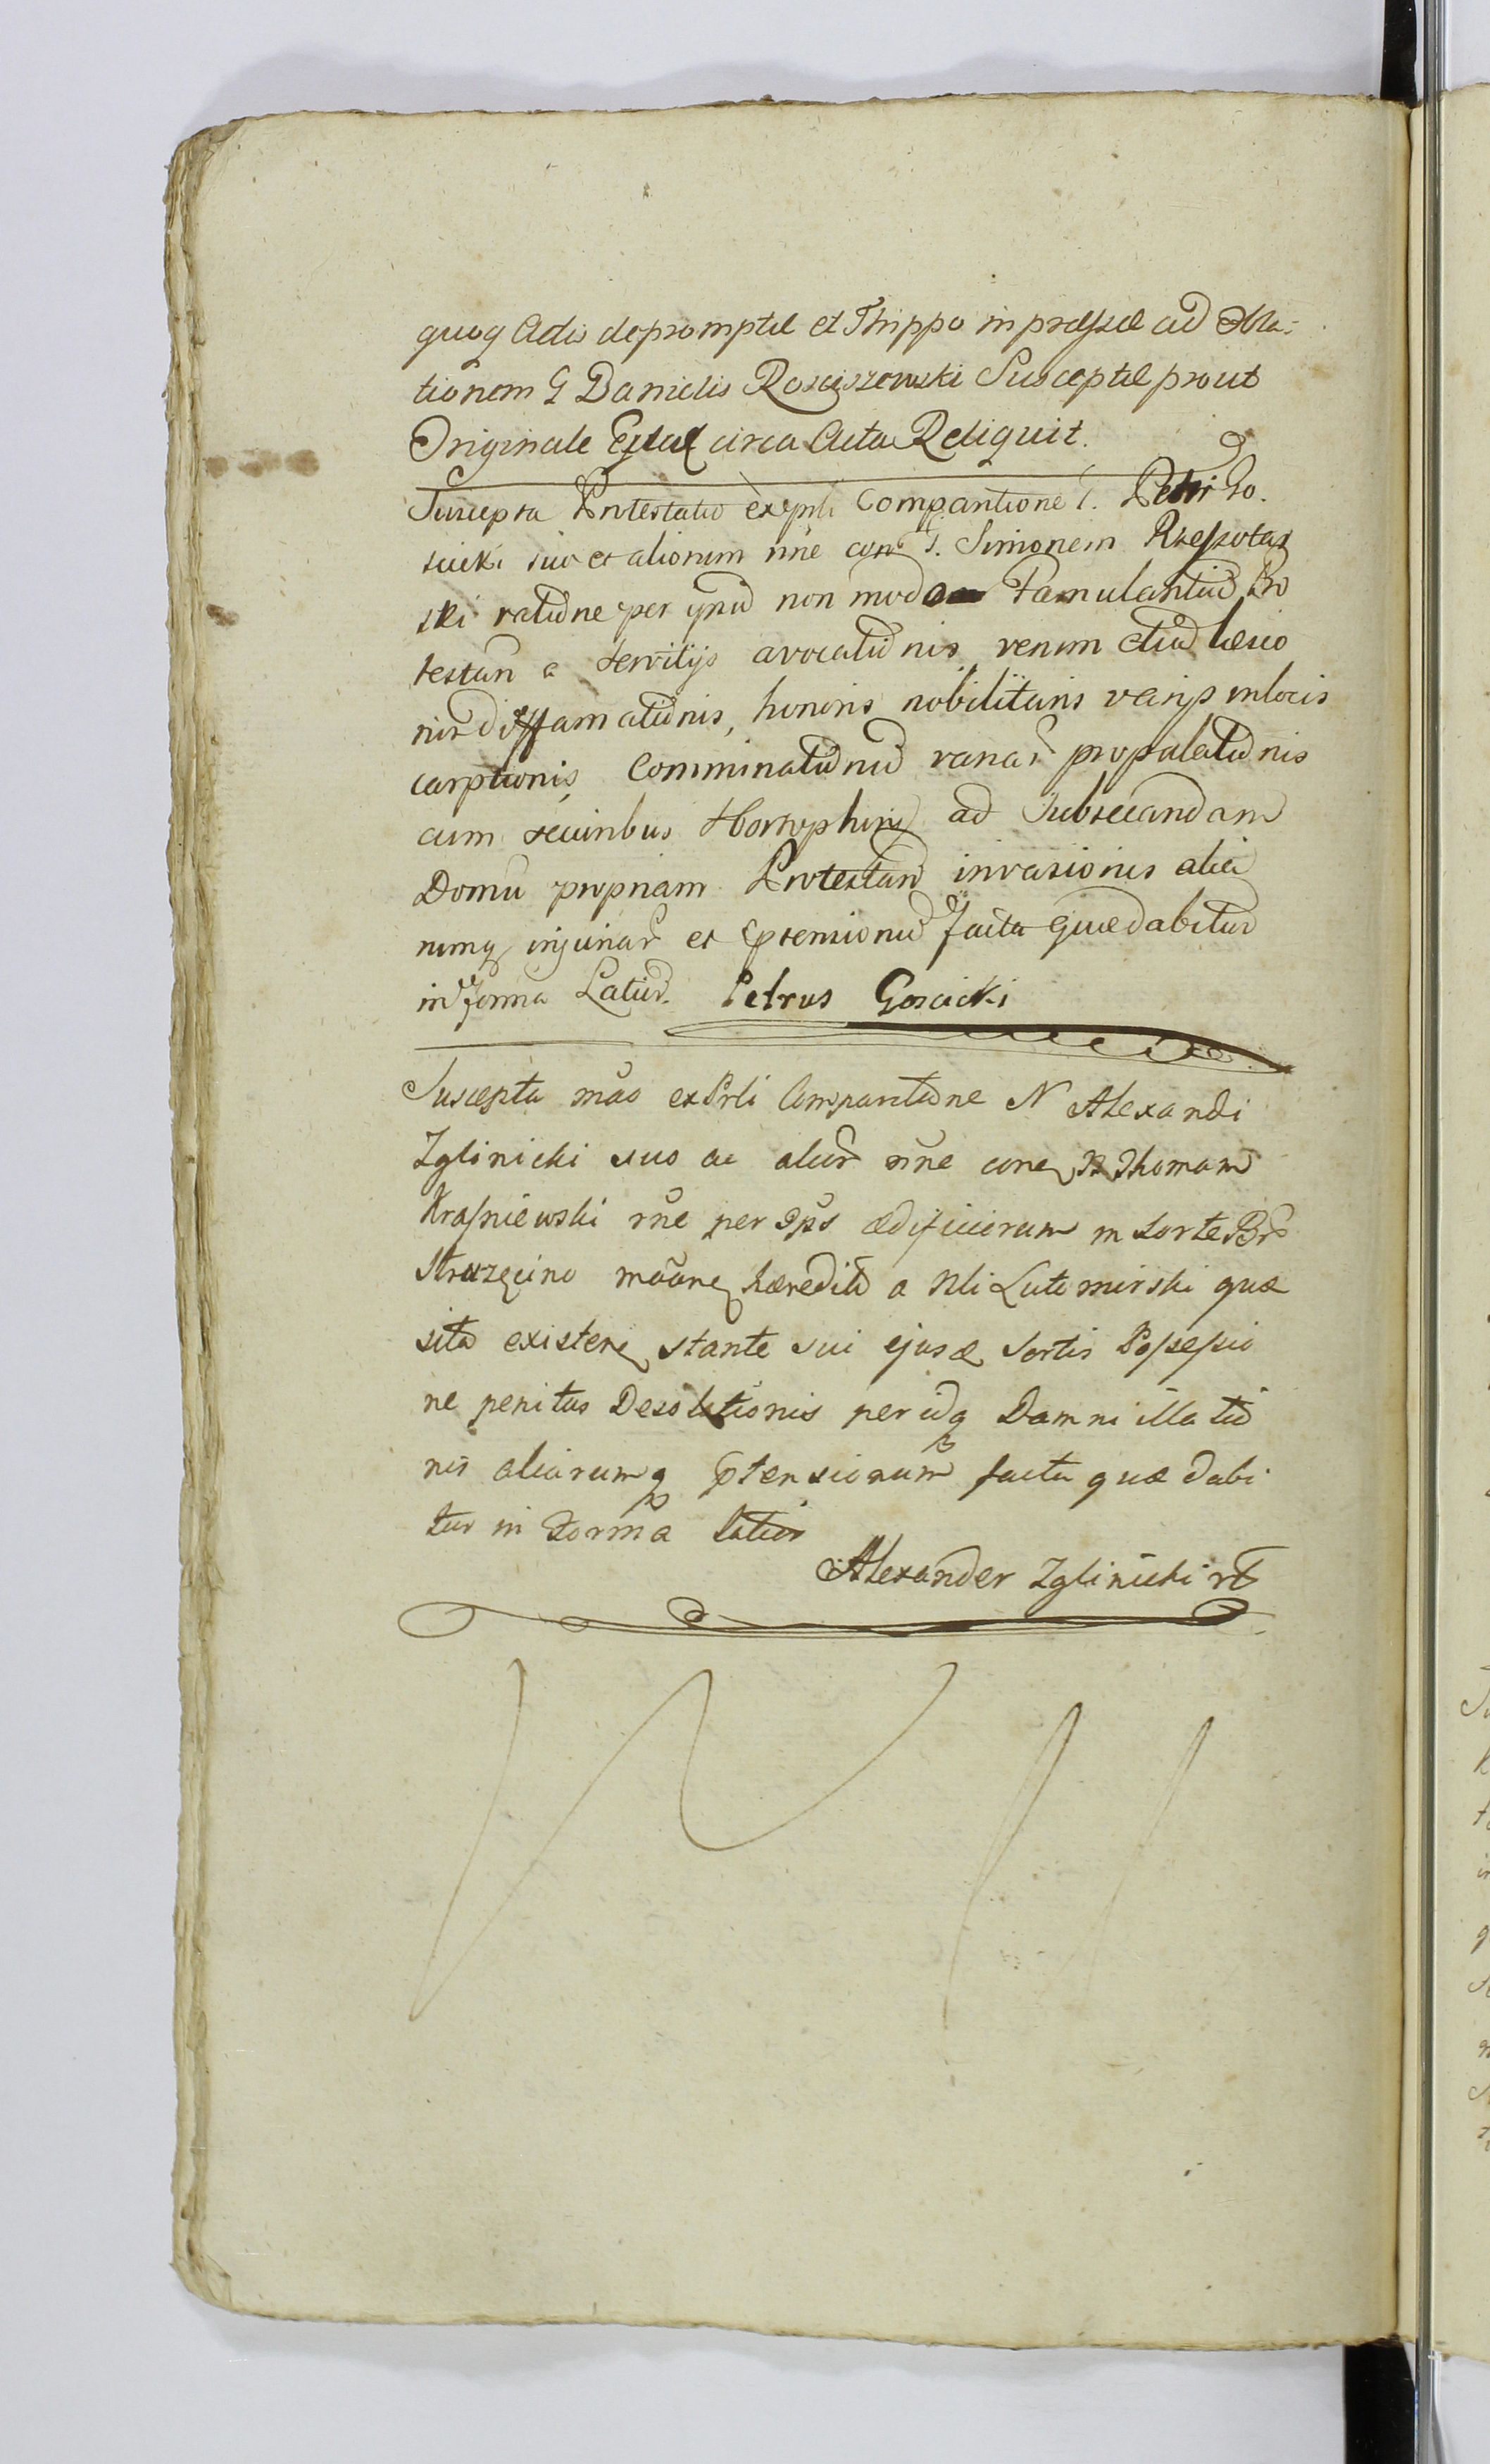 quoq Actis deprompta et Thippo in præsæ ad Obla-
tionem G Danielis Rosciszewski Susceptæ prout
Originale circa Acta Reliquit.
Suscepta Protestatio ex prli Comparitione G. Petri Go.
scicki suo et aliorum nne con G. Simonem Rzeszotar
ski ratione per ipsud non modo Famulantiud Pro
testan a servitijs avocationis verum etiad læsio
nis diffamationis, honoris nobilitaris varijs in locis
carptionis Comminationud variar propalationis
cum securibus ad subsecandam
Domu propriam Protestan invasionis alia
rumq injuriar et ptensionud facta quæ dabitur
in forma Latiur. Petrus Goscicki
Suscepta mao ex Prli Comparitione N Alexandi
Zglinicki suo ac alior nne conq N Thomam
Kraśniewski rne per Ips ædificiorum in sorte Br
Struzęcino hæredita a Nli Lutomirski quæ
sita existenq stante sui ejusæ sortis Possessio
ne penitus Desolationis per idq Damni illatio
nis aliarumq ptensionum facta quæ dabi
tur in Forma latior
Alexander Zglinicki